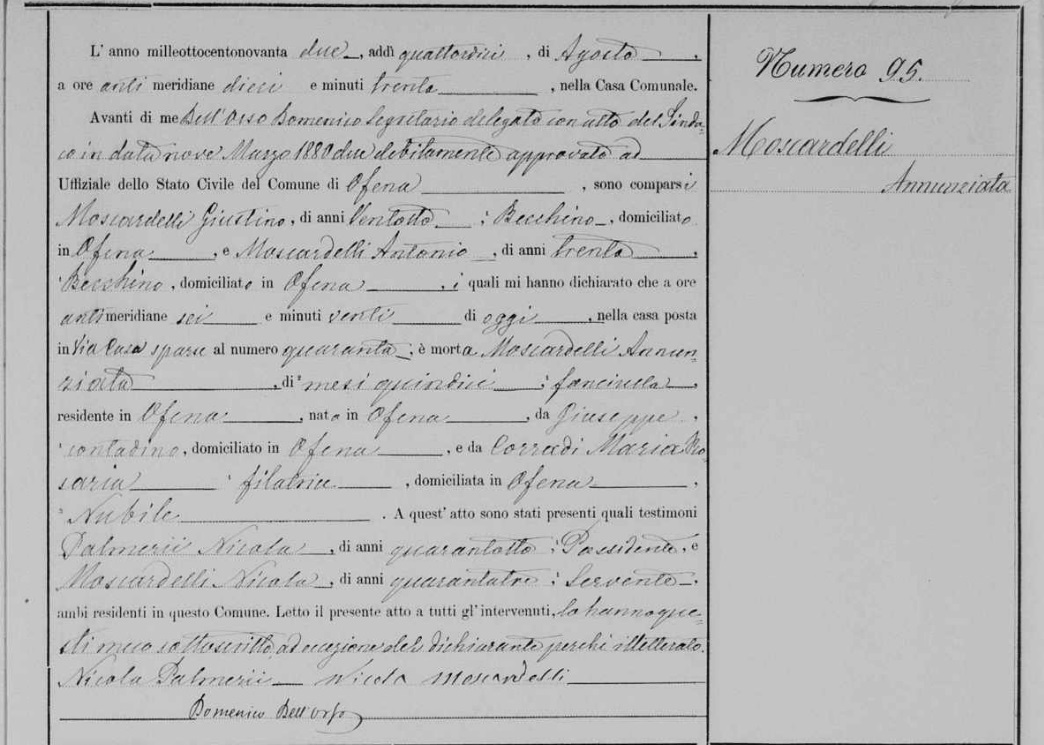 L' anno milleottocentonovanta due, addì quattordici, di Agosto,
a ore anti meridiane dieci e minuti trenta, nella Casa Comunale.
Avanti di me Dell'Orso Domenico Segretario delegato con atto del Sinda-
co in data nove Marzo 1880 due debitamente approvato ad
Uffiziale dello Stato Civile del Comune di Ofena, sono comparsi
Moscardelli Giustino, di anni Ventotto, Becchino, domiciliato
in Ofena, e Moscardelli Antonio, di anni trenta,
Becchino, domiciliato in Ofena, i quali mi hanno dichiarato che a ore
antimeridiane sei e minuti venti di oggi, nella casa posta
in Via Casa sparse al numero quaranta, è morta Moscardelli Annun-
ziata, di mesi quindici, fanciulla,
residente in Ofena, nata in Ofena, da Giuseppe,
contadino, domiciliato in Ofena, e da Corradi Maria Ro-
saria filatrice, domiciliata in Ofena,
Nubile. A quest' atto sono stati presenti quali testimoni
Palmerii Nicola, di anni quarantotto, Possidente, e
Moscardelli Nicola, di anni quarantatre, Servente,
ambi residenti in questo Comune. Letto il presente atto a tutti gl' intervenuti, lo hanno que-
sti meco sottoscritto, ad eccezione del dichiarante perchè illetterato.
Nicola Palmerii Nicola Moscardelli
Domenico Dell'Orso
Numero 95.
Moscardelli
Annunziata